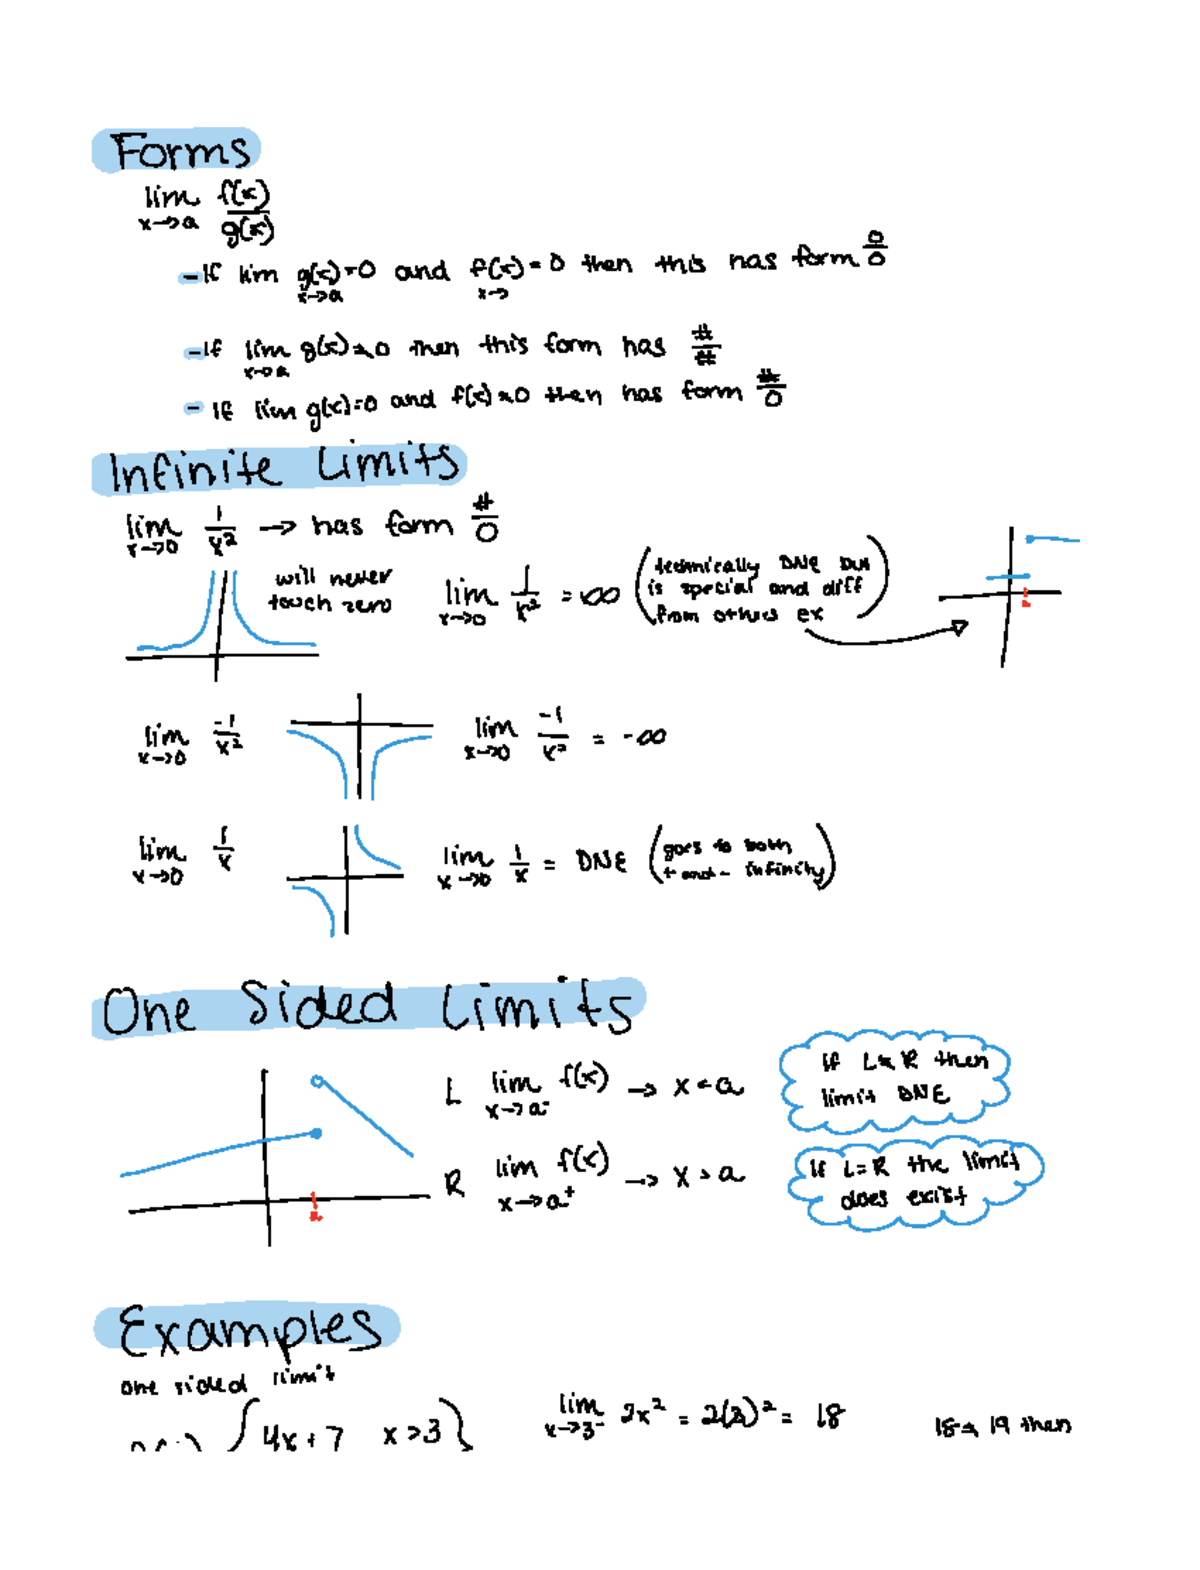 Forms
lim x→a f(x)/g(x)
- If lim x→a g(x)=0 and f(x)=0 x→ then this has form 0/0
- If lim x→a g(x)≠0 then this form has #/#
- If lim g(x)=0 and f(x)≠0 then has form #/0
Infinite Limits
lim x→0 1/x² → has form #/0
will never touch zero
lim x→0 1/x² = ∞
(technically DNE but
is special and diff
from others ex)
a
lim x→0 -1/x²
lim x→0 -1/x² = -∞
lim x→0 1/x
lim x→0 1/x = DNE (goes to both
+ and - infinity)
One Sided Limits
L lim x→a⁻ f(x) → x<a
If L≠R then
limit DNE
R lim x→a⁺ f(x) → x>a
If L=R the limit
does exist
a
Examples
one sided limit
{4x+7 x>3}
lim x→3⁻ 2x² = 2(3)² = 18
18≠19 then